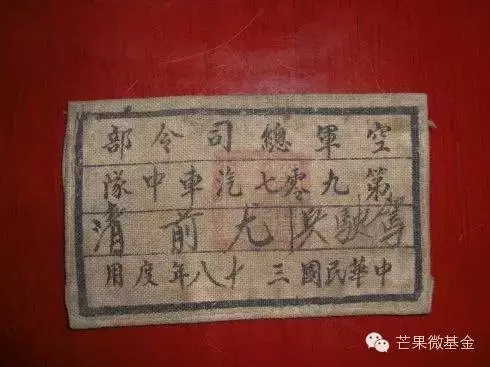 空軍總司令部
第九零七汽車中隊
駕駛 尤前清
中華民國三十八年度用
芒果微基金